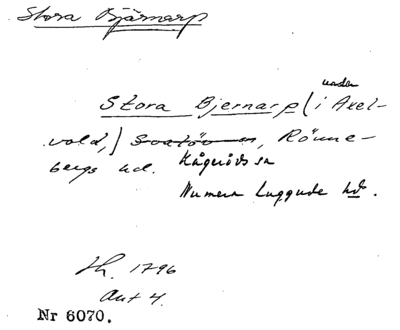 Stora Bjärnarp
under
Stora Bjernarp (i Axel-
vold,) Svalöv sn, Rönne-
bergs hd. Kågeröds sn
Numera Luggude hd.
Th. 1796
Ant 4.
Nr 6070.